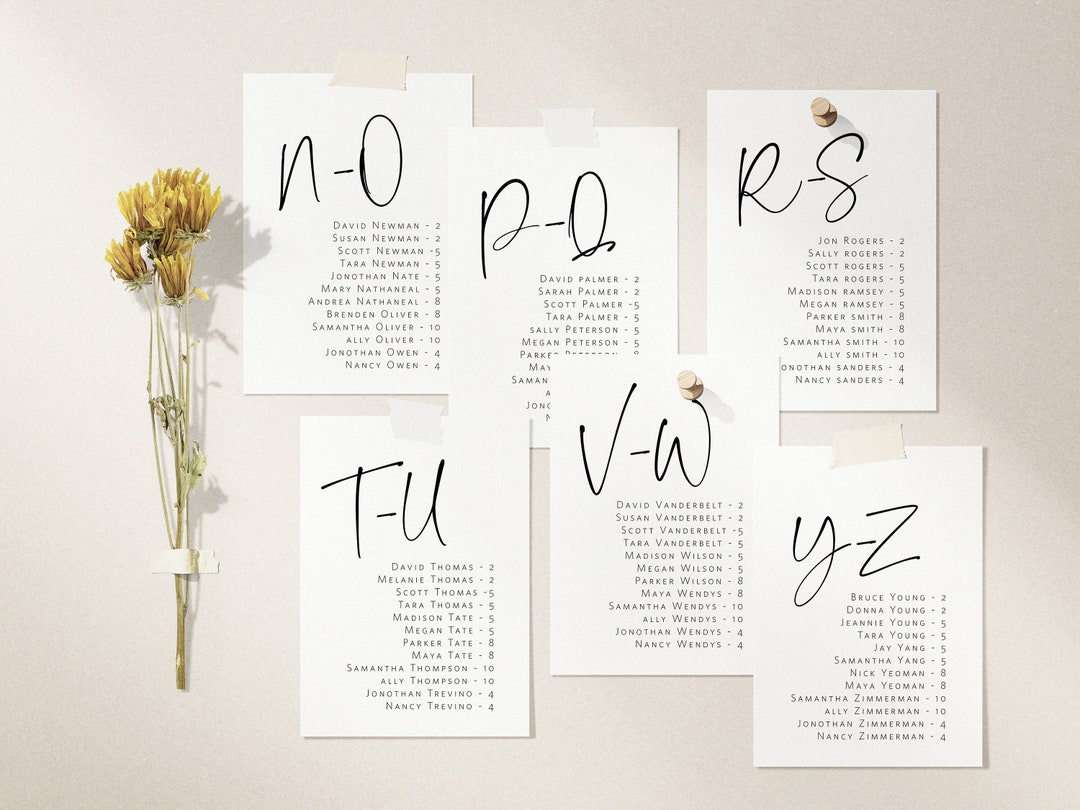 N-O
David Newman - 2
Susan Newman - 2
Scott Newman -5
Tara Newman - 5
Jonothan Nate - 5
Mary Nathaneal - 5
Andrea Nathaneal - 8
Brenden Oliver - 8
Samantha Oliver - 10
ally Oliver - 10
Jonothan Owen - 4
Nancy Owen - 4
P-Q
David palmer - 2
Sarah Palmer - 2
Scott Palmer -5
Tara Palmer - 5
sally Peterson - 5
Megan Peterson - 5
R-S
Jon Rogers - 2
Sally rogers - 2
Scott rogers - 5
Tara rogers - 5
Madison ramsey - 5
Megan ramsey - 5
Parker smith - 8
Maya smith - 8
Samantha smith - 10
ally smith - 10
onothan sanders - 4
Nancy sanders - 4
T-U
David Thomas - 2
Melanie Thomas - 2
Scott Thomas -5
Tara Thomas - 5
Madison Tate - 5
Megan Tate - 5
Parker Tate - 8
Maya Tate - 8
Samantha Thompson - 10
ally Thompson - 10
Jonothan Trevino - 4
Nancy Trevino - 4
V-W
David Vanderbelt - 2
Susan Vanderbelt - 2
Scott Vanderbelt -5
Tara Vanderbelt - 5
Madison Wilson - 5
Megan Wilson - 5
Parker Wilson - 8
Maya Wendys - 8
Samantha Wendys - 10
ally Wendys - 10
Jonothan Wendys - 4
Nancy Wendys - 4
Y-Z
Bruce Young - 2
Donna Young - 2
Jeannie Young - 5
Tara Young - 5
Jay Yang - 5
Samantha Yang - 5
Nick Yeoman - 8
Maya Yeoman - 8
Samantha Zimmerman - 10
ally Zimmerman - 10
Jonothan Zimmerman - 4
Nancy Zimmerman - 4